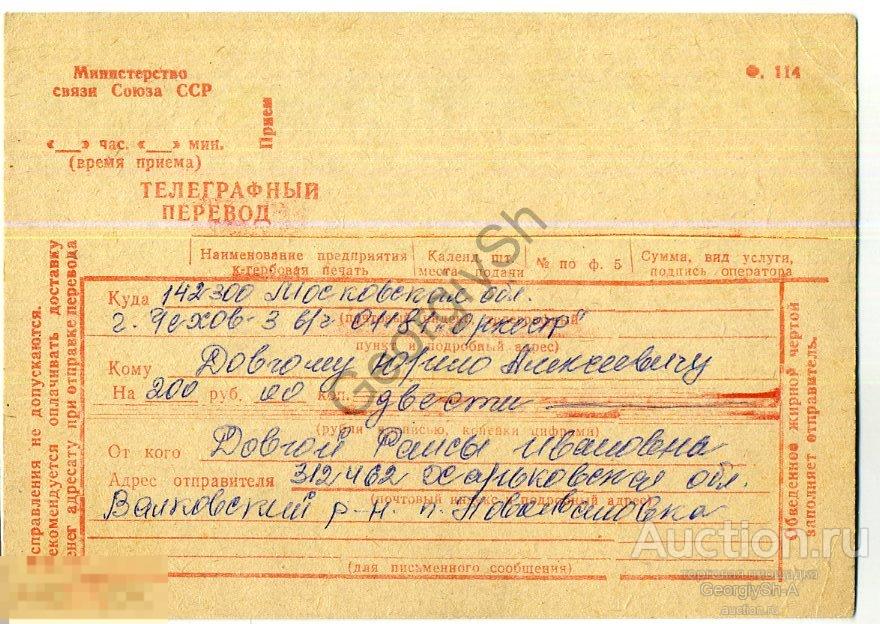 Министерство
связи Союза ССР
Ф. 114
Прием
«__» час. «__» мин.
(время приема)
ТЕЛЕГРАФНЫЙ
ПЕРЕВОД
Наименование предприятия
к-гербовая печать
Календ. шт.
места подачи
№ по ф. 5
Сумма, вид услуги,
подпись оператора
справления не допускаются.
екомендуется оплачивать доставку
енег адресату при отправке перевода
Куда 142300 Московская обл.
(почтовый индекс,
г. Чехов-3 в/ч "Оркестр"
пункт и подробный адрес)
Кому Довгому Юрию Алексеевичу
На 200 руб. 00 коп. двести
(рубли прописью, копейки цифрами)
От кого Довгой Раисы Ивановна
Адрес отправителя 312462 Харьковская обл.
(почтовый индекс, подробный адрес)
Валковский р-н. п.
(для письменного сообщения)
Обведенное жирной чертой
заполняет отправитель.
GeorgiySh
Auction.ru
торговая площадка
GeorgiySh-A
auction.ru